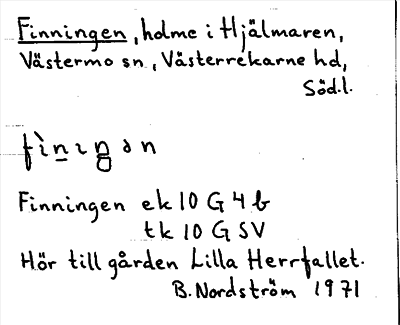 Finningen, holme i Hjälmaren,
Västermo sn, Västerrekarne hd,
Söd.l.
fìnıŋən
Finningen ek 10 G 4 b
tk 10 G SV
Hör till gården Lilla Herrfallet.
B. Nordström 1971